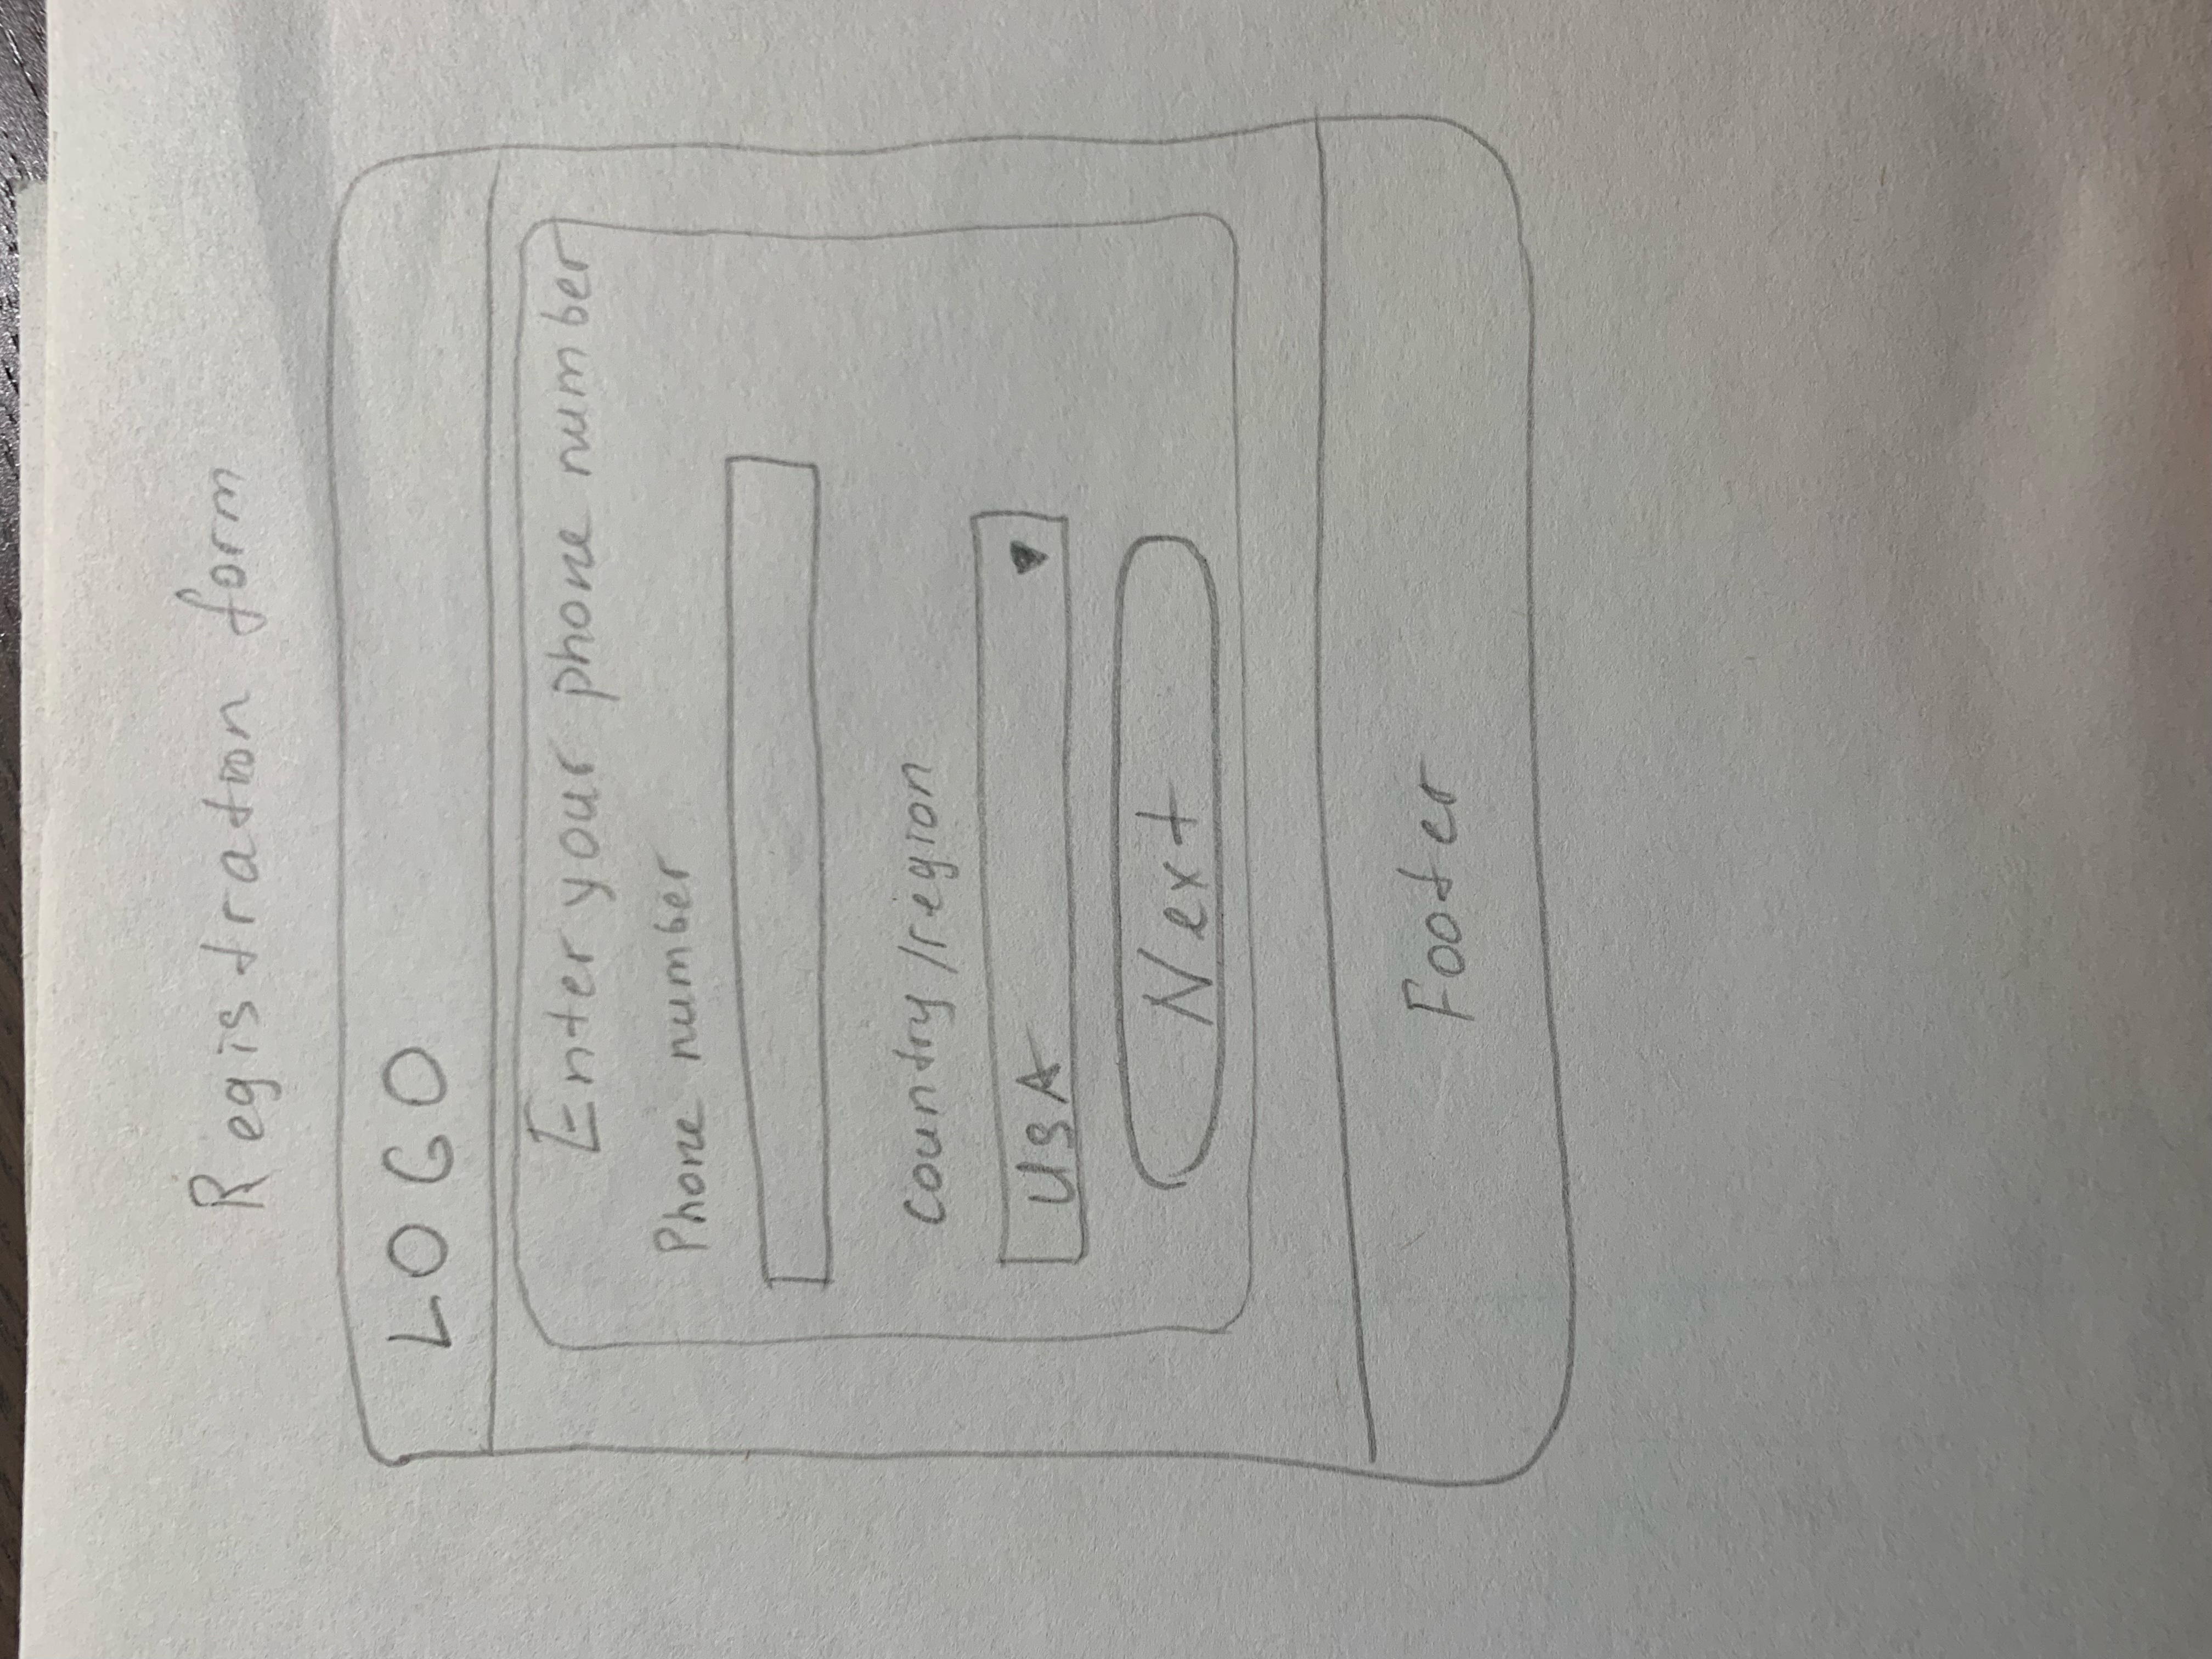 Registration form
LOGO
Enter your phone number
Phone number
Country/region
USA
Next
Footer